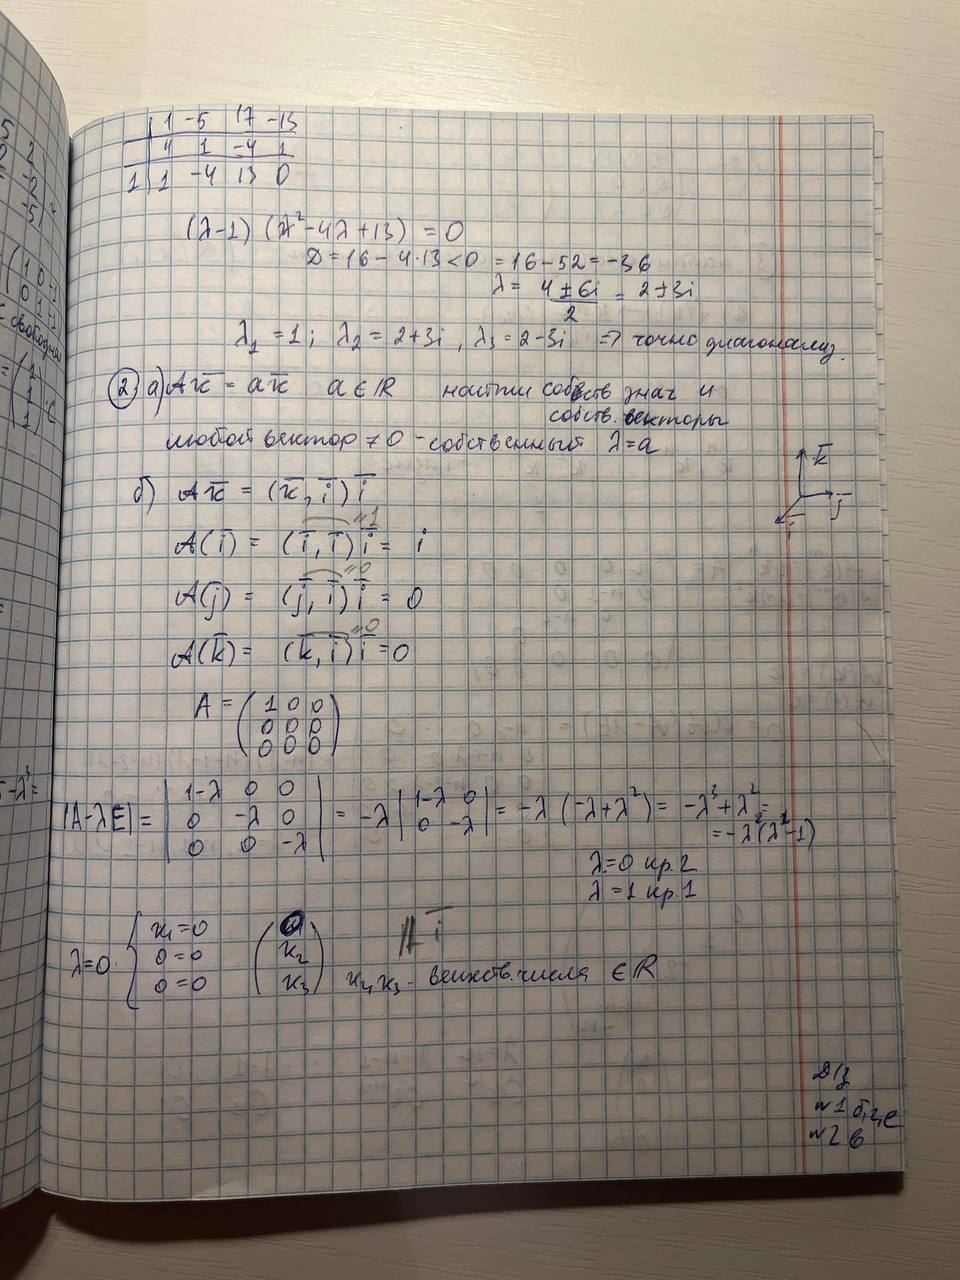 1 -5 17 -13
4 1 -4 1
1 1 -4 13 0
(λ-1) (λ²-4λ+13) = 0
D = 16 - 4·13 < 0 = 16-52 = -36
λ = (4±6i)/2 = 2±3i
λ₁ = 1; λ₂ = 2+3i, λ₃ = 2-3i => точно диагонализ.
② а) Ax̄ = ax̄ a∈ℝ найти собств знач и
собств. векторы
любой вектор ≠ 0 - собственный λ=a
k̄
j̄
ī
б) Ax̄ = (x̄, ī) ī
A(ī) = (ī, ī) ī = i
=1
A(j̄) = (j̄, ī) ī = 0
=0
A(k̄) = (k̄, ī) ī = 0
=0
A = (1 0 0
0 0 0
0 0 0)
|A-λE| = |1-λ 0 0
0 -λ 0
0 0 -λ| = -λ |1-λ 0
0 -λ| = -λ (-λ+λ²) = -λ³+λ² =
= -λ²(λ-1)
λ=0 кр.2
λ=1 кр.1
λ=0. { x₁=0
0=0
0=0
(0
x₂
x₃) ⊥ ī
x₂, x₃ - веществ. числа ∈ℝ
Д/з
№1 б, г, е
№2 в
5 2
-2
-5
1 0 -1
0 1 -1
свободная
= (1
1
1) c
-λ³ =